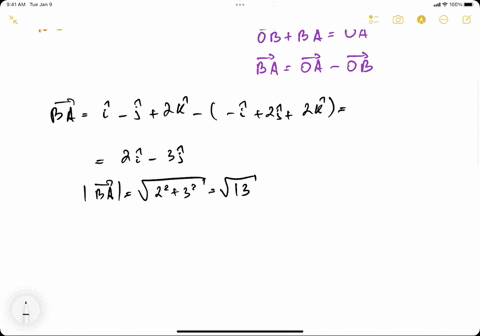 9:41 AM Tue Jan 9
100%
OB + BA = OA
BA⃗ = OA⃗ - OB⃗
BA⃗ = î - ĵ + 2k̂ - (-î + 2ĵ + 2k̂) =
= 2î - 3ĵ
|BA⃗| = √(2² + 3²) = √13